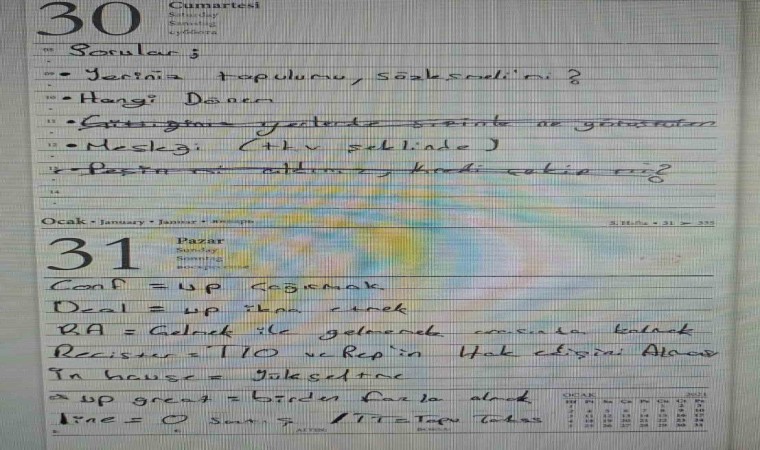 30 Cumartesi
Saturday
Samstag
суббота
Sorular ;
• Yeriniz tapulumu, sözleşmeli'mi ?
• Hangi Dönem
• yerlerde sizinle ne
• Mesleği ( + k v şeklinde )
• Peşin mi aldınız, kredi çekip mi?
Ocak • January • Januar •
31 Pazar
Sunday
Sonntag
воскресенье
Conf = up Çağırmak
Deal = up ikna etmek
BA = Gelmek ile gelmemek arasında kalmak
Recister = T/O ve Rep'in Hak edişini Alması
in house = Yükseltme
up great = birden fazla almak
line = 0 satış / TT = Tapu Takas
OCAK 2021